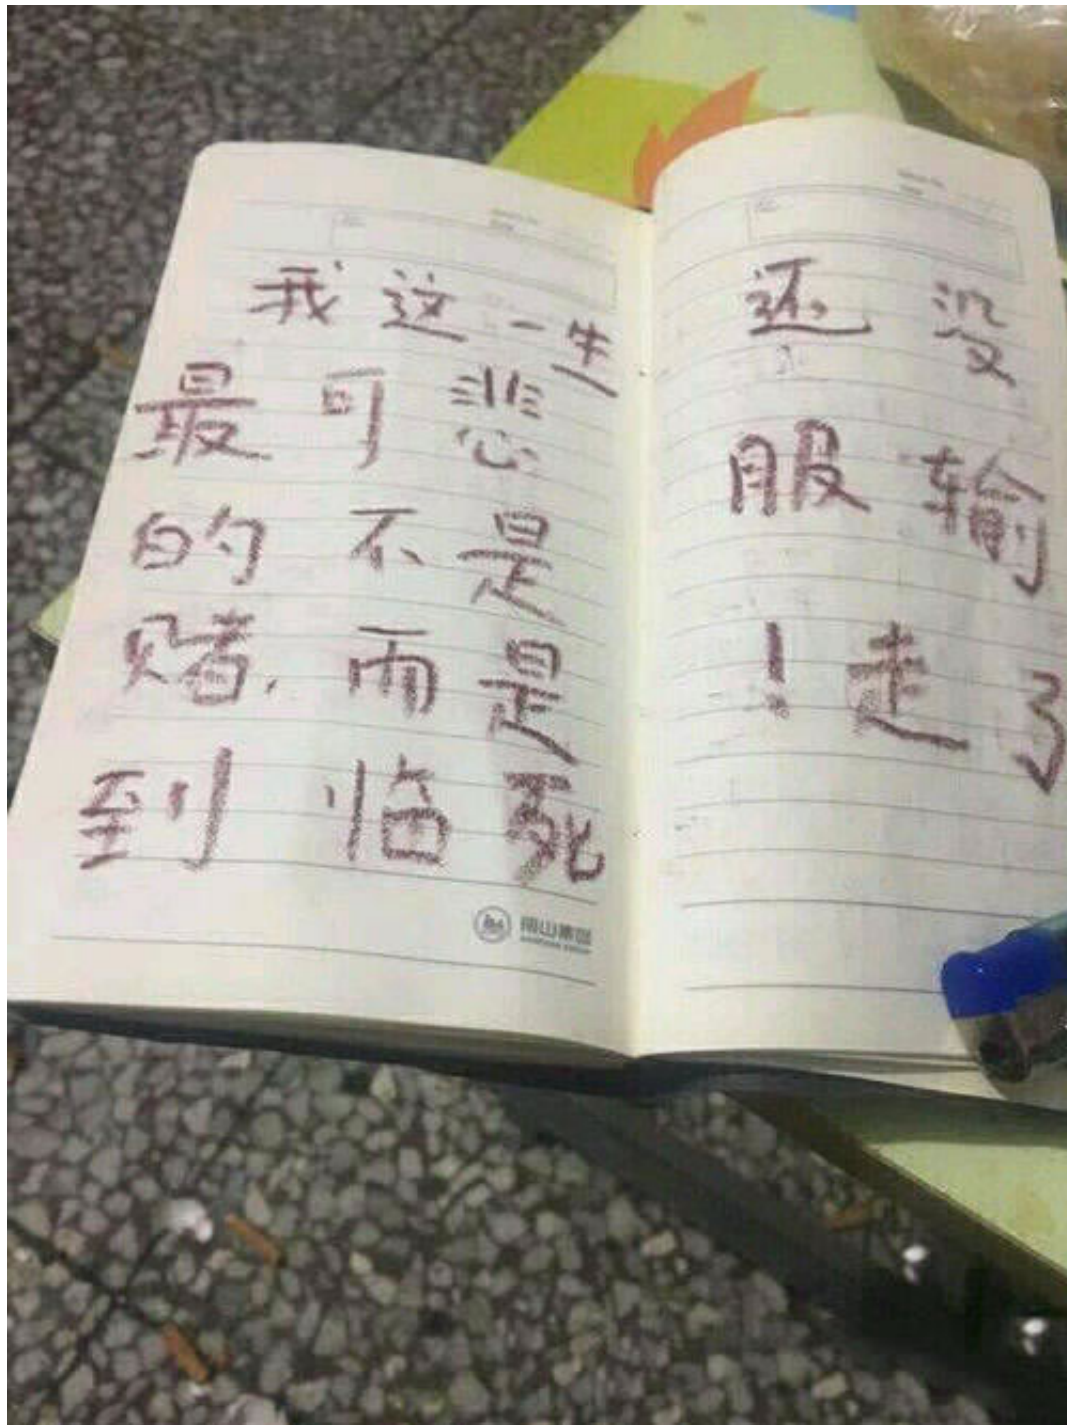 我这一生
最可悲
的不是
赌,而是
到临死
还没
服输
!走了